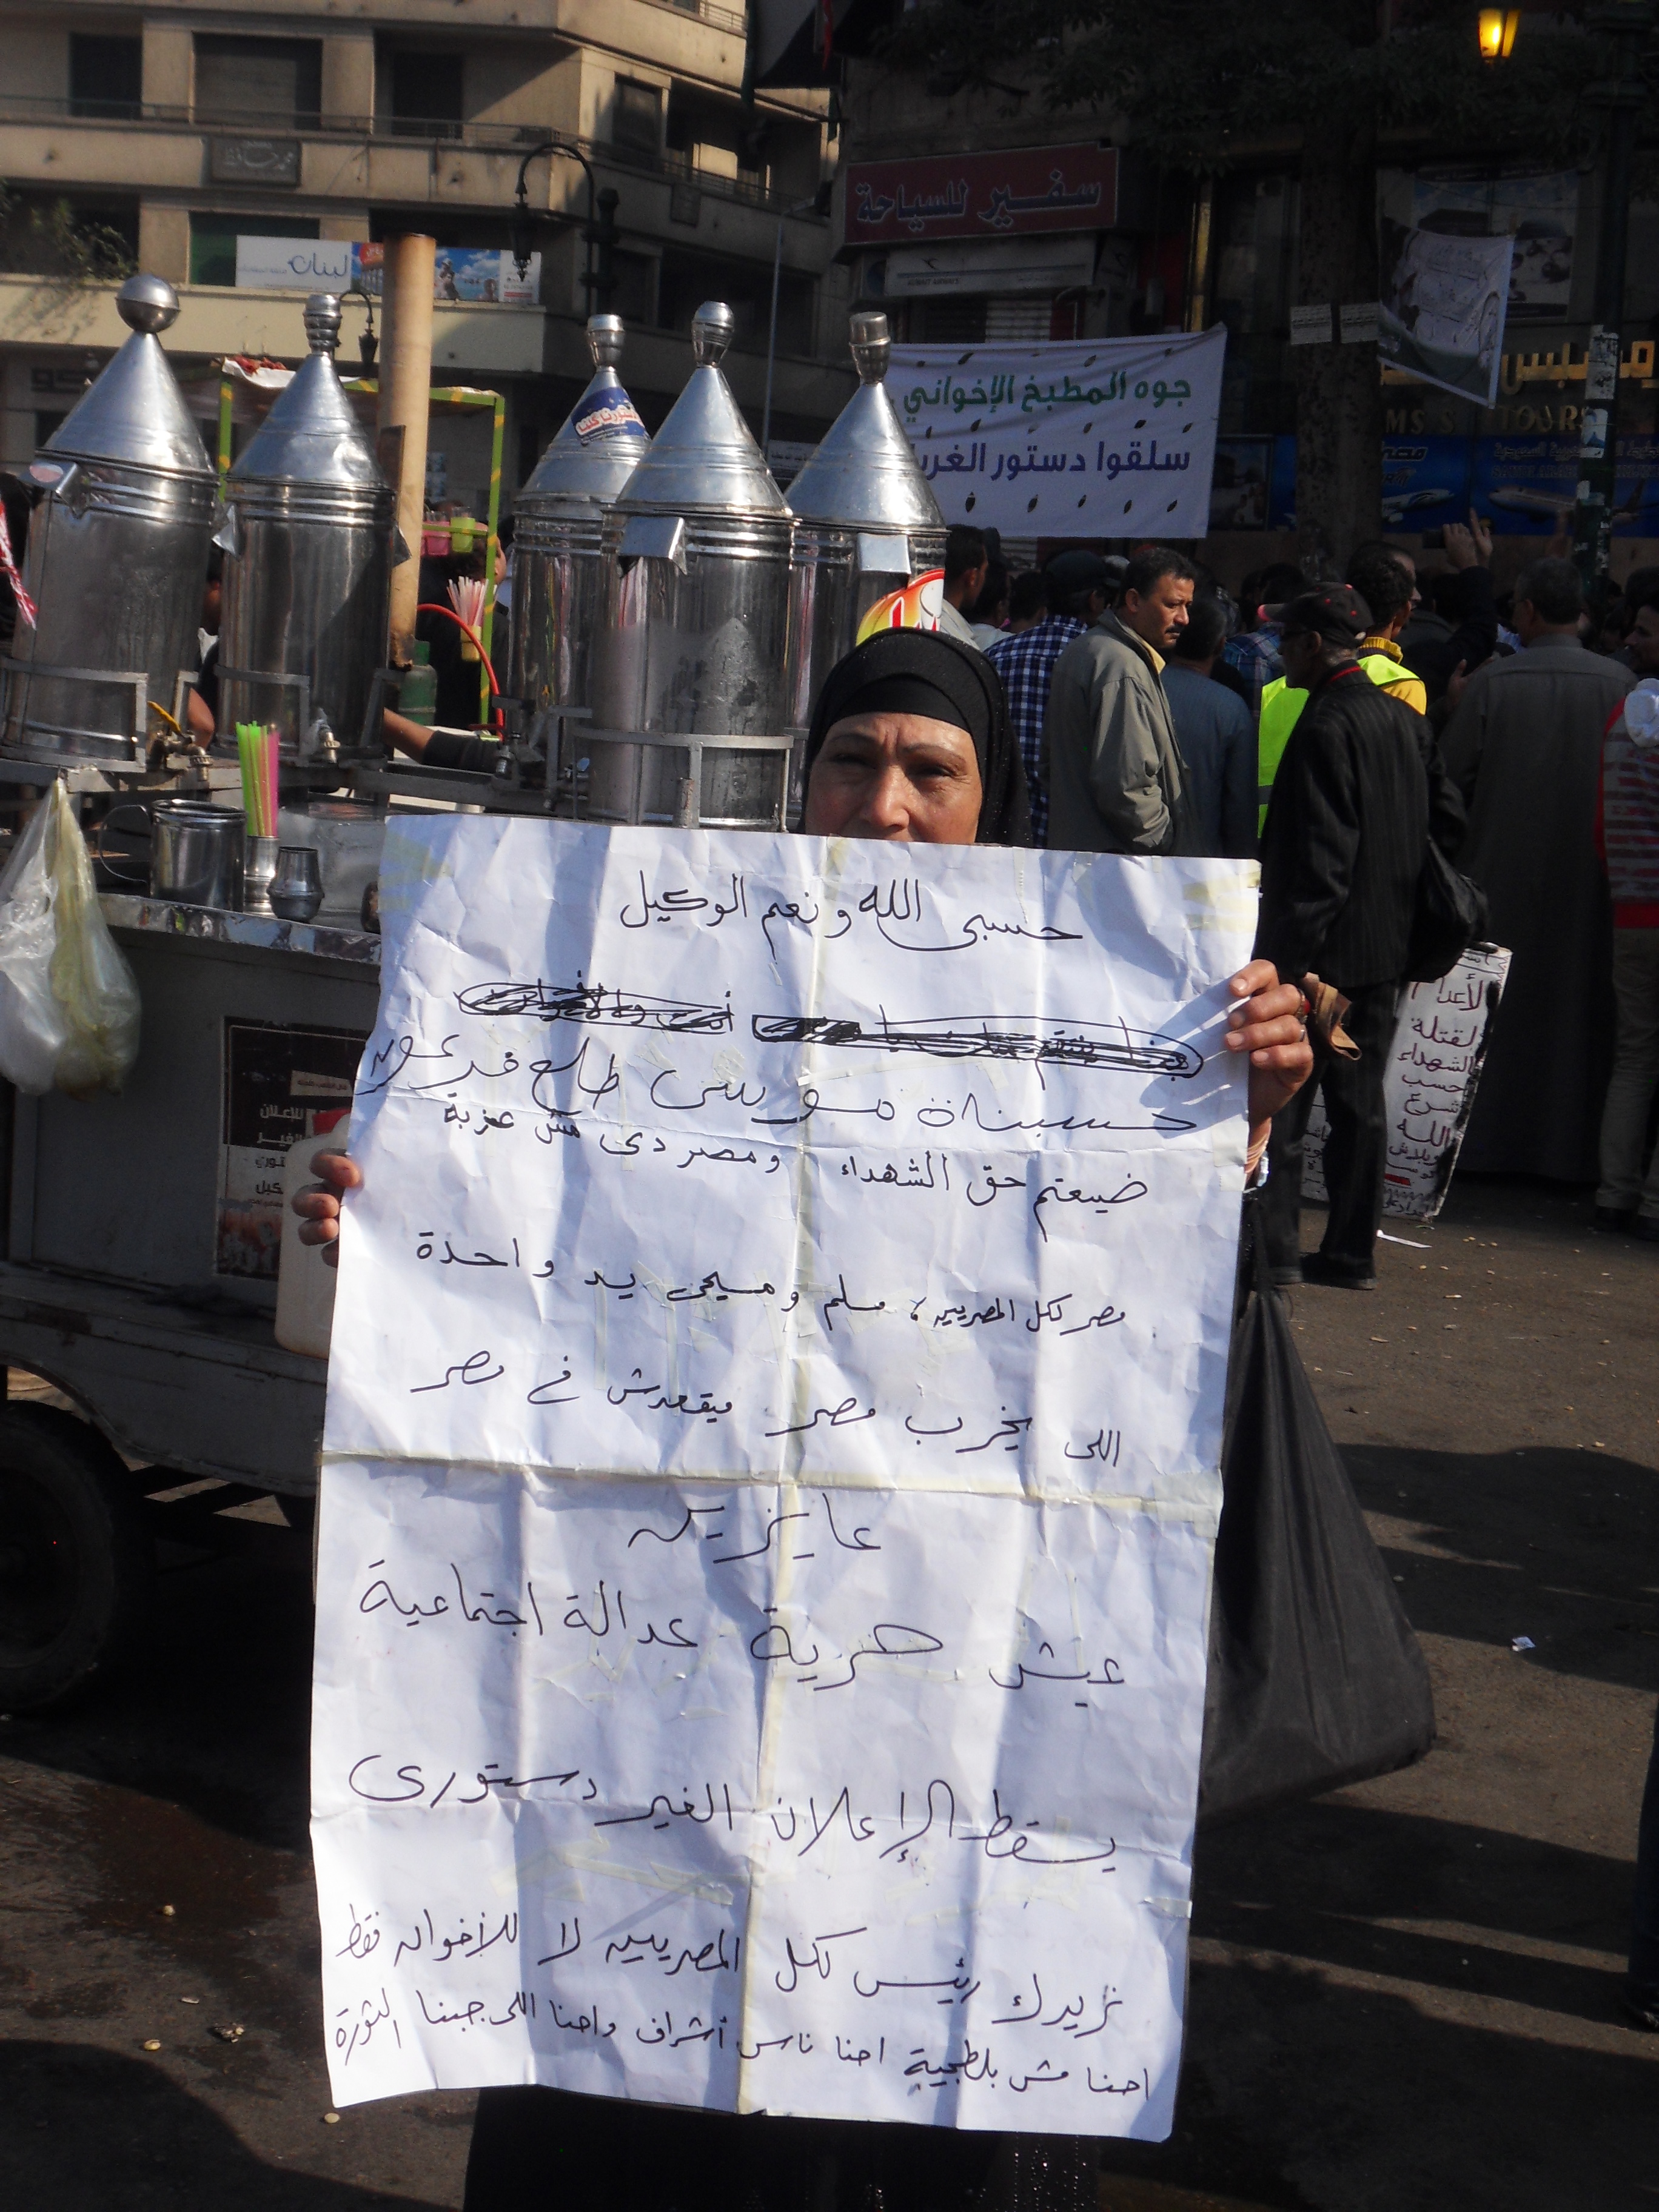 محمد حافظ
لبنان
سفير للسياحة
KUWAIT AIRWAYS
جوه المطبخ الإخواني
سلقوا دستور الغريا
TOURS
مصر
حسبى الله ونعم الوكيل
حسبناة مورسى طلع فرعون
ضيعتم حق الشهداء ومصر دى مش عزبة
مصر لكل المصريين، مسلم ومسيحى يد واحدة
اللى يخرب مصر ميقعدش فى مصر
عايزين
عيش حرية عدالة اجتماعية
يسقط الإعلان الغير دستورى
نريدك رئيس لكل المصريين لا للأخوان فقط
احنا مش بلطجية احنا ناس أشراف واحنا اللى جبنا الثورة
الأعدام
لقتلة
الشهداء
حسب
شرع
الله
للإعلان
الغير